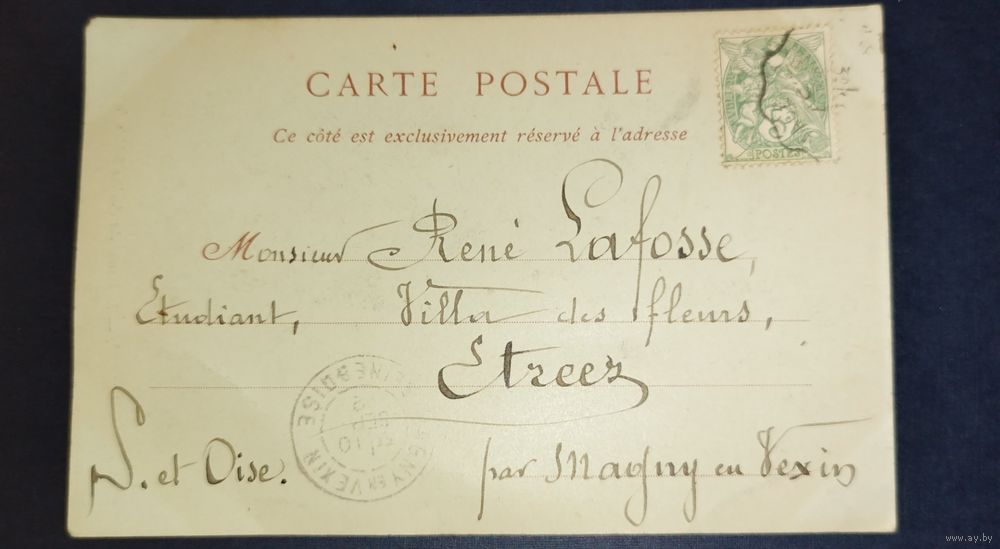 CARTE POSTALE
Ce côté est exclusivement réservé à l'adresse
POSTES
Monsieur René Lafosse,
Etudiant, Villa des fleurs,
Etreez
S. et Oise. par Magny en Vexin
EN VEXIN
OISE
www.ay.by